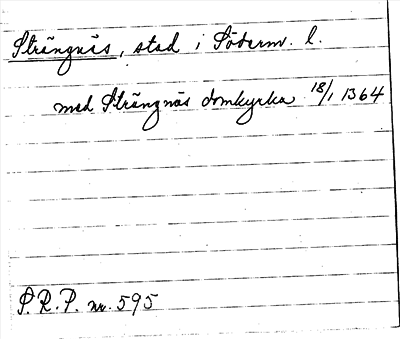 Strängnäs, stad i Söderm. l.
med Strängnäs domkyrka 18/1 1364
S.R.P. nr. 595